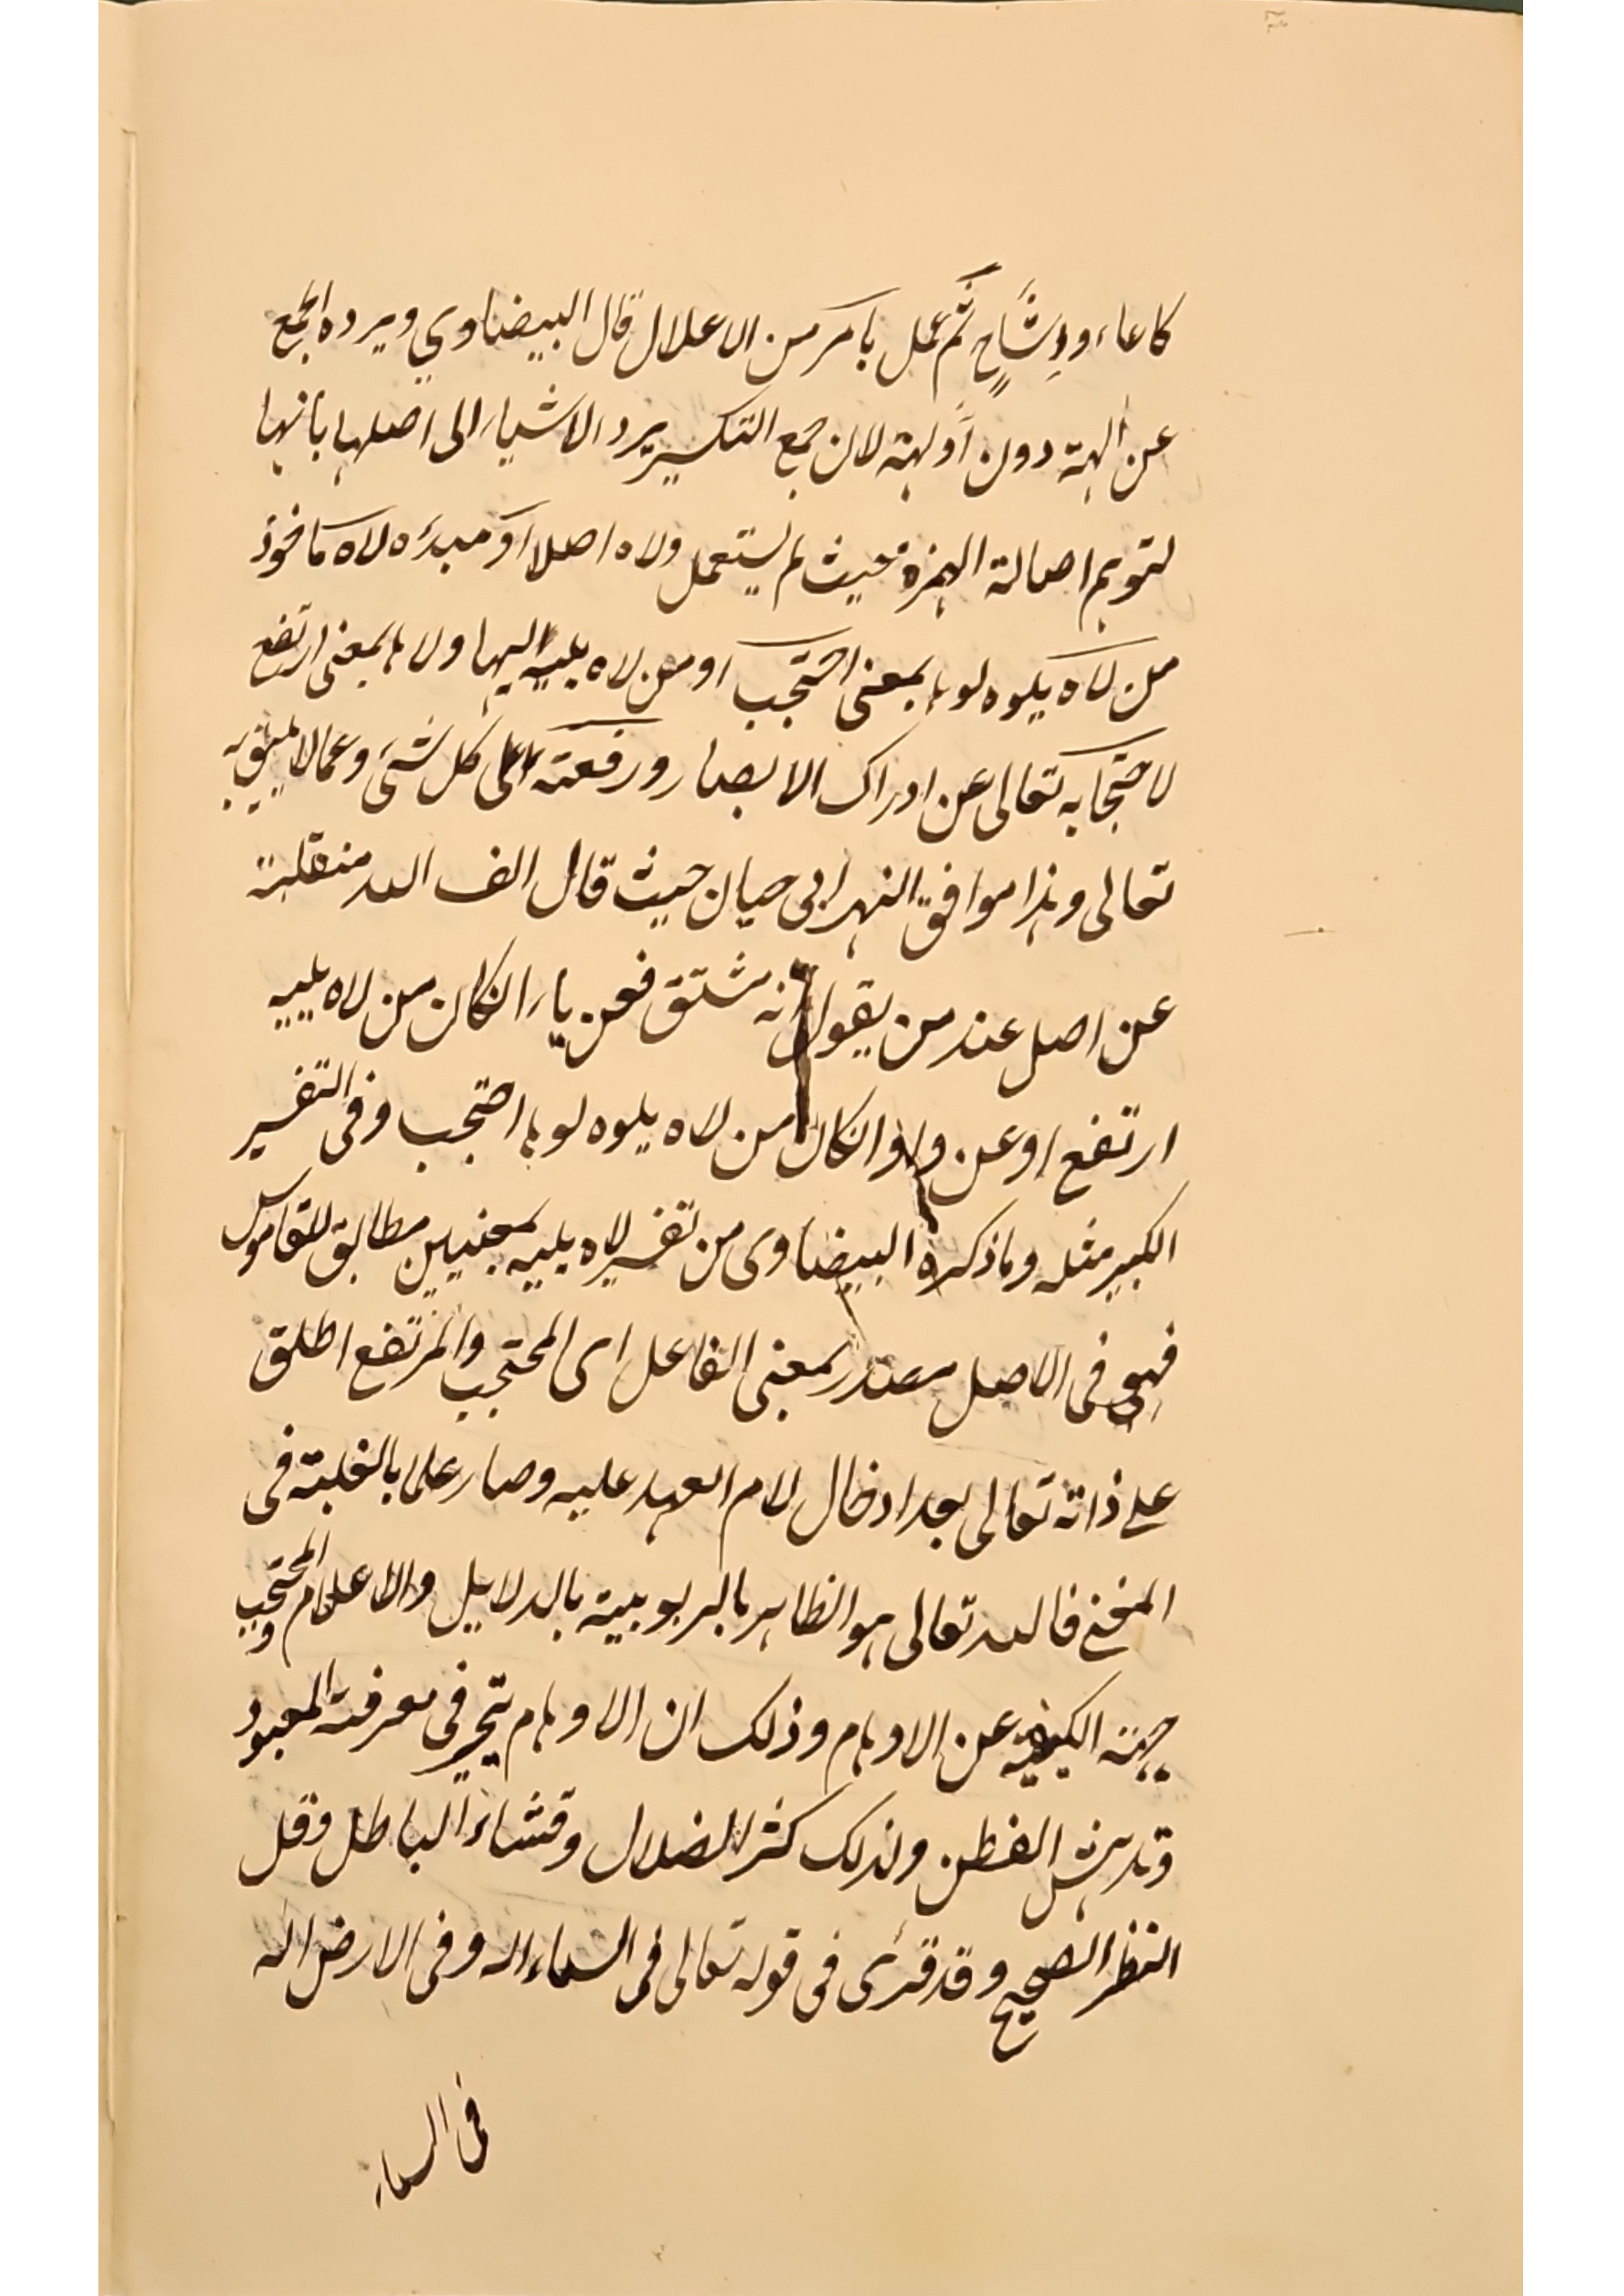 كاعاء وإشاح ثم عمل بامر من الاعلال قال البيضاوي ويرده الجمع
عن الهة دون أولهة لان جمع التكسير يرد الاشياء الى اصلها بانها
لتوهم اصالة الهمزة حيث لم يستعمل ولاه اصلا او مبدءه لاه ماخوذ
من لاه يلوه لوها بمعنى احتجب او من لاه يليه ليها ولاها بمعنى ارتفع
لاحتجابه تعالى عن ادراك الابصار ورفعته على كل شئ وعما لا يليق به
تعالى وهذا موافق النهر ابى حيان حيث قال الف الله منقلبة
عن اصل عند من يقول انه مشتق فعن ياء ان كان من لاه يليه
ارتفع او عن واو ان كان من لاه يلوه لوها احتجب وفى التفسير
الكبير مثله وما ذكره البيضاوى من تفسير لاه يليه بمعنيين مطابق للقاموس
فهو فى الاصل مصدر بمعنى الفاعل اى المحتجب والمرتفع اطلق
على ذاته تعالى بعد ادخال لام العهد عليه وصار علما بالغلبة فى
فالله تعالى هو الظاهر بالربوبية بالدلايل والاعلام والمحتجب
جهة الكيفية عن الاوهام وذلك ان الاوهام تتحير فى معرفة المعبود
وتدهش الفطن ولذلك كثر الضلال وفشاء الباطل وقل
النظر الصحيح وقد قرئ فى قوله تعالى فى السماء اله وفى الارض اله
فى السماء